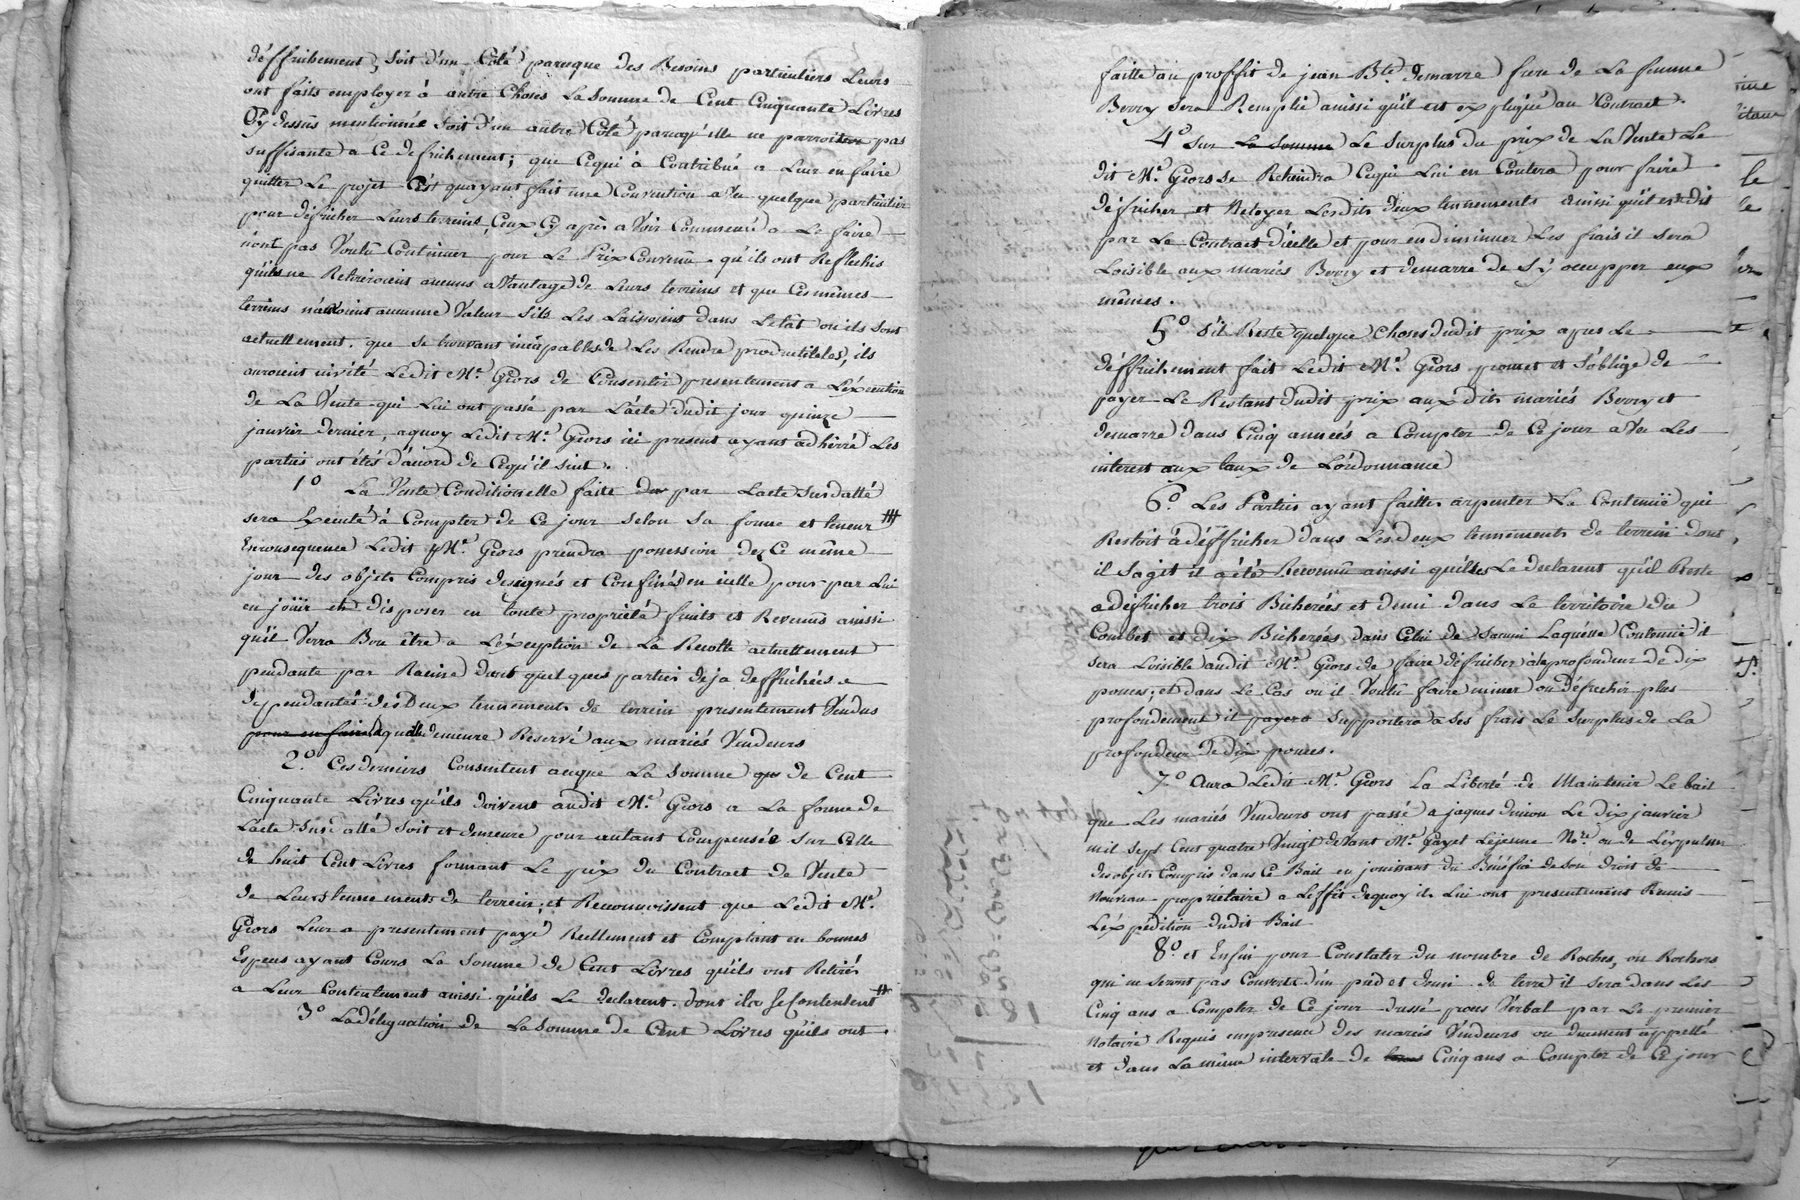 déffrichement, soit d'un Coté parceque des Besoins particuliers Leurs
ont faits employer á autre Choses La Somme de Cent Cinquante Livres
Cy dessus mentionnée soit d'un autre Coté parcequ'elle ne parroit pas
suffisante a Ce defrichement; que Cequi á Contribué a Leur en faire
quitter Le projet C'est quayant fait une Convention avec quelque particulier
pour défricher Leurs terreins, Ceux Cy après avoir Commencé a Le faire
n'ont pas Voulû Continuer pour Le Prix Convenû qu'ils ont Reflechis
qu'ils ne Retireroient aucuns avantage de Leurs terreins et que Ces mêmes
terreins n'auroient aucunne Valeur s'ils Les Laissoient dans L'etat ou ils sont
actuellement. que se trouvant incapables de Les Rendre productibles, ils
auroient invité Ledit Me. Giors de Consentir presentement a L'éxecution
de La Vente qui Lui ont passé par L'acte dudit jour quinze
janvier dernier, aquoy Ledit Me. Giors ici present ayant adhérré Les
parties ont étés d'acord de Cequ'il suit.
1o La Vente Conditionnelle faite par Lacte susdatté
sera Executé á Compter de Ce jour selon sa forme et teneur
En consequence Ledit Me. Giors prendra possession dez Ce même
jour des objets Compris designés et Confinés en icelle pour par Lui
en joüir et disposer en toute propriété fruits et Revenus ainsi
qu'il Verra Bon être a L'éxeption de La Recolte actuellement
pendante par Racine dans quelques parties deja deffrichées
dependantes des Deux tennements de terrein presentement Vendus
pour en faire quelle demeure Reservé aux mariés Vendeurs
2o. Ces derniers Consentent aceque La Somme de Cent
Cinquante Livres qu'ils doivent audit Me. Giors a La forme de
L'acte susdatté soit et demeure pour autant Compensée sur Celle
de huit Cent Livres formant Le prix du Contract de Vente
de Leurs tennements de terrein; et Reconnoissent que Ledit Me.
Giors Leur a presentement payé Réellement et Comptant en bonnes
Especes ayant Cours La Somme de Cent Livres qu'ils ont Retirés
a Leur Contentement ainsi qu'ils Le declarent. dont ils se Contentent
3o La délégation de La Somme de Cent Livres qu'ils ont
faitte au proffit de jean Bte. demarre frere de La femme
Berry sera Remplie ainsi qu'il est expliqué au Contract.
4o sur La Somme Le Surplus du prix de La Vente Le
dit Me. Giors se Retiendra Cequi Lui en Coutera pour faire
défricher et Netoyer Lesdits deux tennements ainsi qu'il est dit
par Le Contract d'icelle et pour en diminuer Les frais il sera
Loisible aux mariés Berry et demarre de s'y occupper eux
mêmes.
5o S'il Reste quelque Choses dudit prix apres Le
déffrichement fait Ledit Me. Giors promet et s'oblige de
payer Le Restant dudit prix aux dits mariés Berry et
demarre dans Cinq années a Compter de Ce jour avec Les
interest aux taux de L'ordonnance
6o. Les Parties ayant faitte arpenter La Contenüe qui
Restoit à déffricher dans Les deux tennements de terrein dont
il s'agit il a été Reconnu ainsi qu'elles Le declarent qu'il Reste
a defricher trois Bicherées et demi dans Le territoire du
Combet et dix Bicherées dans Celui de Laquelle Contenue il
sera Loisible audit Me. Giors de faire défricher à la profondeur de dix
pouces; et dans Le Cas ou il Voulû faire miner ou défrichir plus
profondement il payera supportera a ses frais Le Surplus de La
profondeur de dix pouces.
7o. Aura Ledit Me. Giors La Liberté de Maintenir Le bail
que Les mariés Vendeurs ont passé a jaques Le dix janvier
mil sept Cent quatre Vingt devant Me. Gayet Lejeune Nore. ou de L'expulser
des objets Compris dans Ce Bail en jouissant du Bénéfice de son droit de
Nouveau propriétaire a L'effet dequoy ils Lui ont presentement Remis
L'éxpédition dudit Bail
8o. et Enfin pour Constater du nombre de Roches, ou Rochers
qui ne seront pas Couverts d'un pied et demi de terre il sera dans Les
Cinq ans a Compter de Ce jour dressé procès Verbal par Le premier
Notaire Requis en presence des mariés Vendeurs ou duement appellé
et dans La même intervale de Cinq ans a Compter de Ce jour